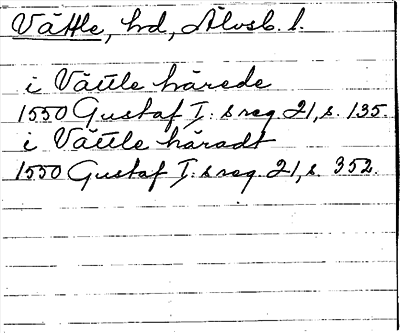 Vättle, hd, Älvsb. l.
i Vättle härede
1550 Gustaf I:s reg. 21, s. 135.
i Vättle häradt
1550 Gustaf I:s reg. 21, s. 352.